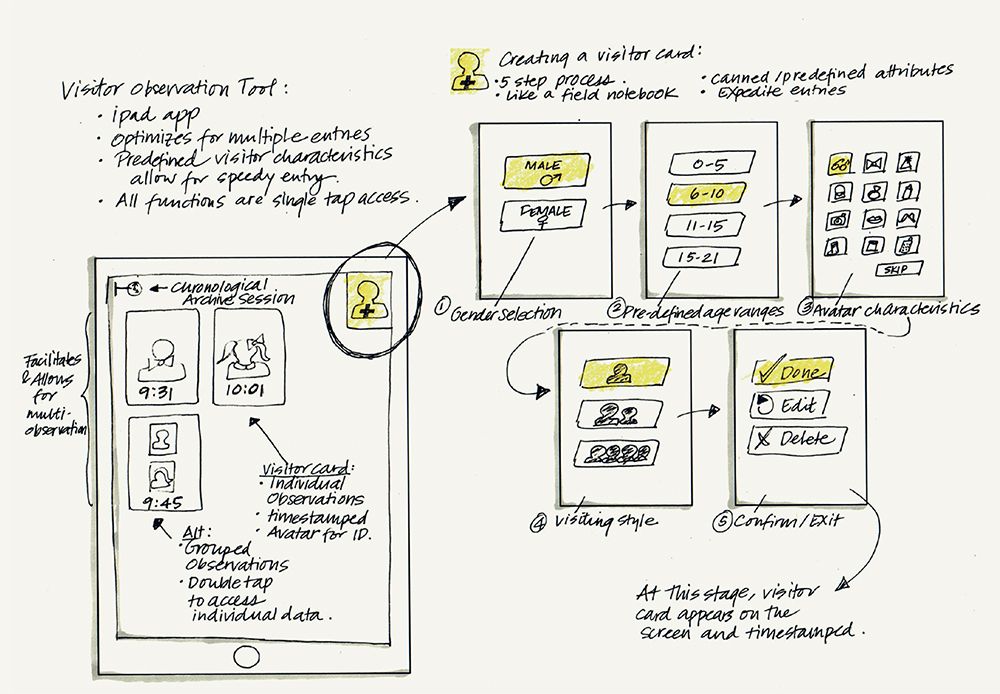 Visitor Observation Tool:
• ipad app
• optimizes for multiple entries
• Predefined visitor characteristics
allow for speedy entry.
• All functions are single tap access.
Creating a visitor card:
• 5 step process.
• Like a field notebook
• canned/predefined attributes
• Expedite entries
MALE
FEMALE
① Gender Selection
0-5
6-10
11-15
15-21
② Predefined age ranges
SKIP
③ Avatar characteristics
④ Visiting style
Done
Edit
Delete
⑤ Confirm/Exit
At this stage, visitor
card appears on the
screen and timestamped.
Chronological
Archive Session
Facilitates
& Allows
for
multi-
observation
9:31
10:01
9:45
Visitor Card:
• Individual
Observations
• timestamped
• Avatar for ID.
Alt:
• Grouped
Observations
• Double tap
to access
individual data.